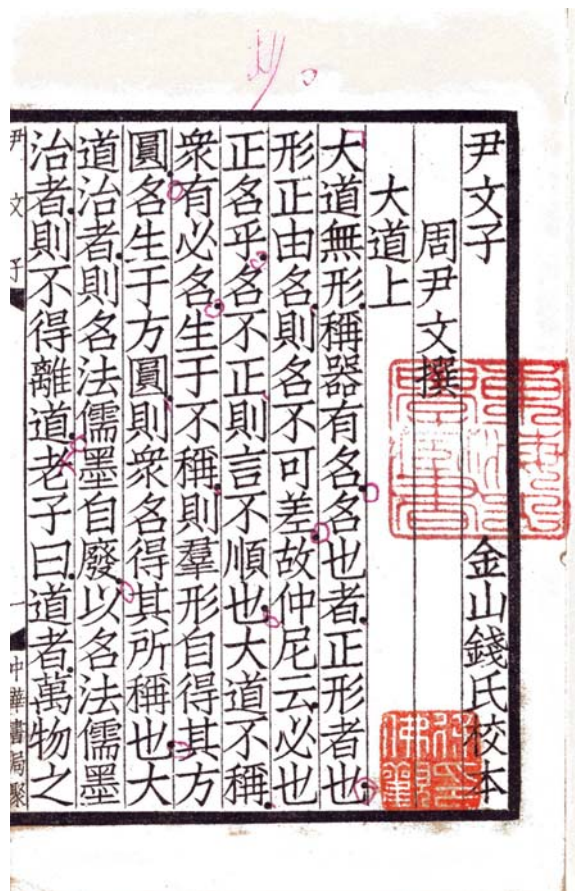 尹文子
金山錢氏校本
周尹文撰
大道上
大道無形稱器有名名也者正形者也
形正由名則名不可差故仲尼云必也
正名乎名不正則言不順也大道不稱
衆有必名生于不稱則羣形自得其方
圓名生于方圓則衆名得其所稱也大
道治者則名法儒墨自廢以名法儒墨
治者則不得離道老子曰道者萬物之
尹文子
一
中華書局聚